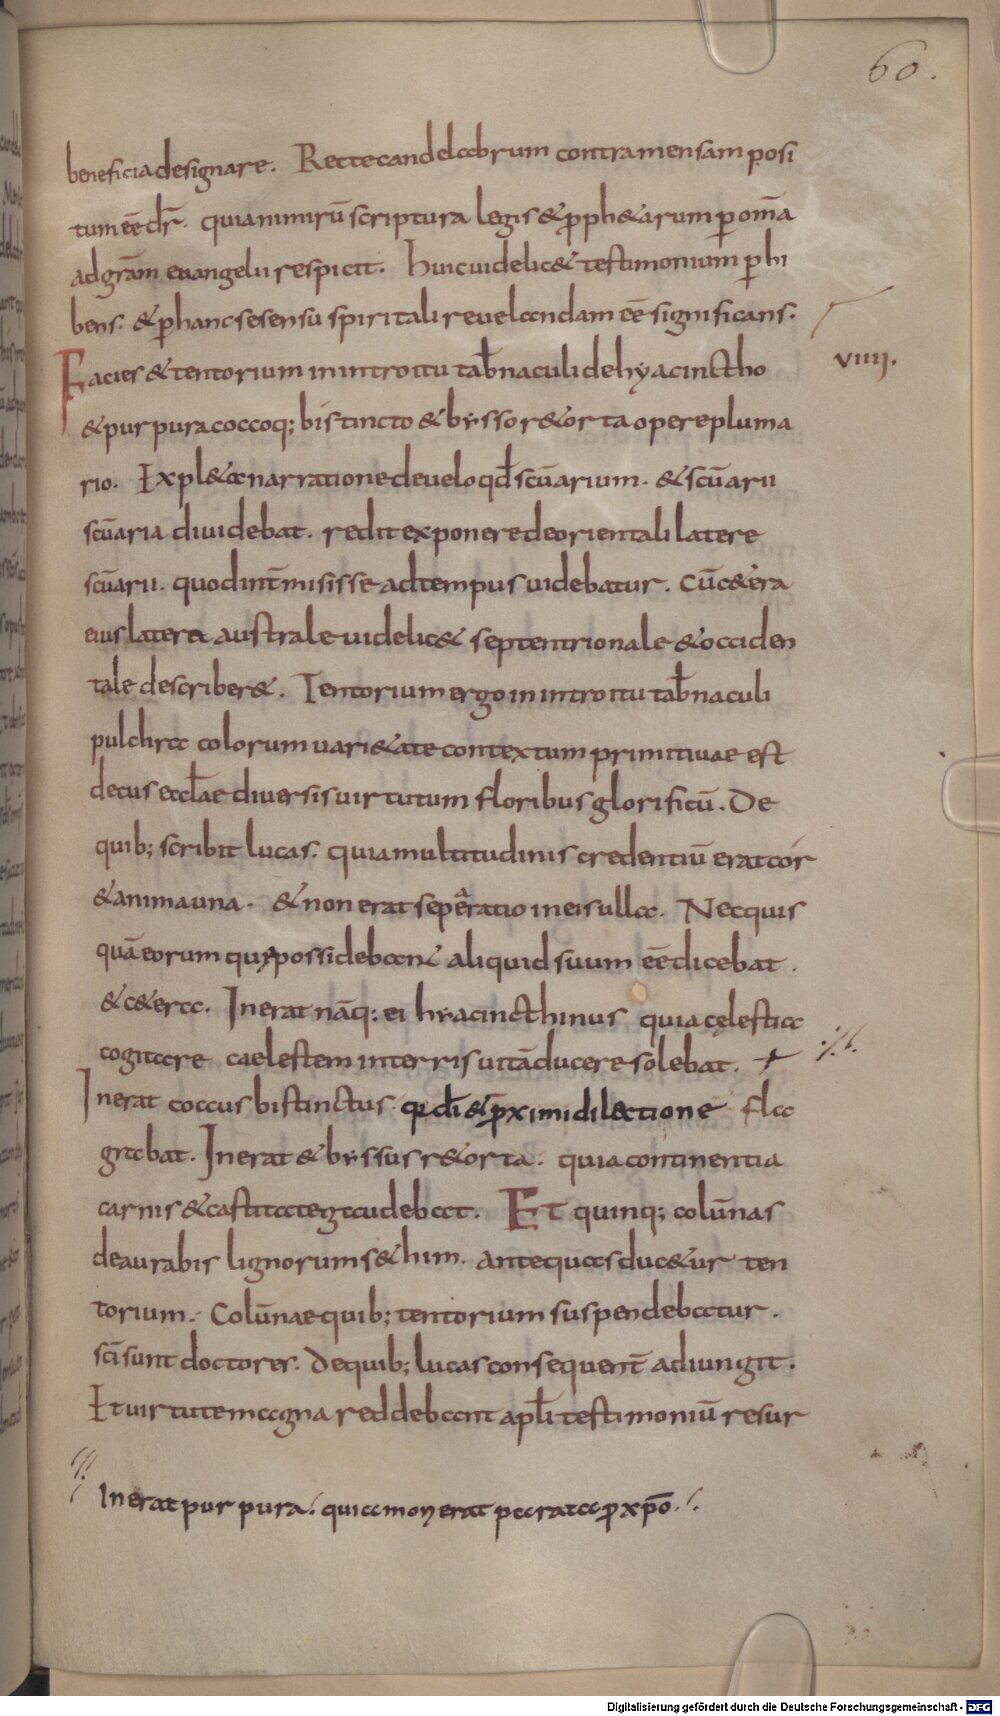 60.
beneficia designare. Recte candelabrum contra mensam posi
tum eē dr̄. quia nimirū scriptura legis & p̄ph&arum p̄ om̄a
ad grām euangelii respicit. huic uidelic& testimonium p̄hi
bens. & p̄ hanc se sensu spiritali reuelandam eē significans.
viiii.
Facies & tentorium in introitu tab̄naculi de hyacinctho
& purpura coccoq; bis tincto & bysso r&orta opere pluma
rio. Expl&a narratione de uelo qd̄ scūarium. & scūarii
scūaria diuidebat. redit exponere de orientali latere
scūarii. quod int̄misisse ad tempus uidebatur. Cū c&era
eius latera australe uidelic& septentrionale & occiden
tale describer&. Tentorium ergo in introitu tab̄naculi
pulchra colorum uari&ate contextum primitiuae est
decus eccl̄ae diuersis uirtutum floribus glorificū. De
quib; scribit lucas. quia multitudinis credentiū erat cor
& anima una. & non erat seperatio in eis ulla. Nec quis
quā eorum quę possidebant aliquid suum eē dicebat.
& c&era. Inerat nāq: ei hyacincthinus quia cęlestia
cogitare caelestem in terris uitā ducere solebat.
Inerat coccus bis tinctus. q di & p̄ximi dilectione fla
grabat. Inerat & byssus r&orta. quia continentia
carnis & castitate gaudebat. Et quinq; colūnas
deaurabis lignorum s&him. ante quas duc&ur ten
torium. Colūnae quib; tentorium suspendebatur.
sci sunt doctores. De quib; lucas consequent̄ adiungit.
Et uirtute magna reddebant apl̄i testimoniū resur
Inerat purpura. quia mori erat parata p̄ xpō.
Digitalisierung gefördert durch die Deutsche Forschungsgemeinschaft - DFG